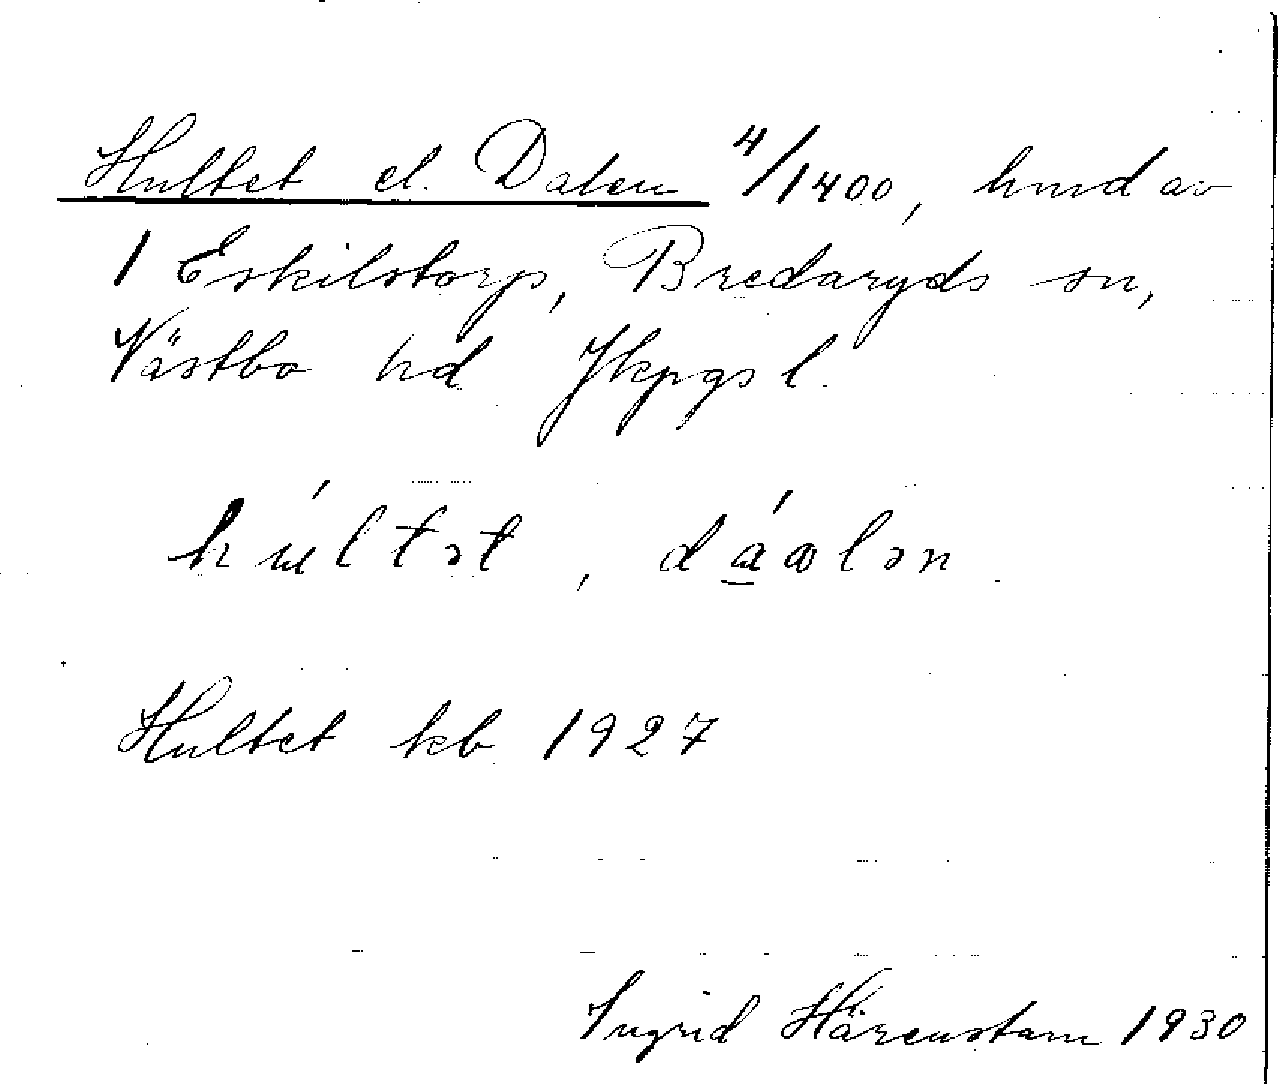 Hultet el. Dalen 4/1400, hmd av
1 Eskilstorp, Bredaryds sn,
Västbo hd Jkpgs l.
húltət, dáalən
Hultet kb 1927
Ingrid Härenstam 1930